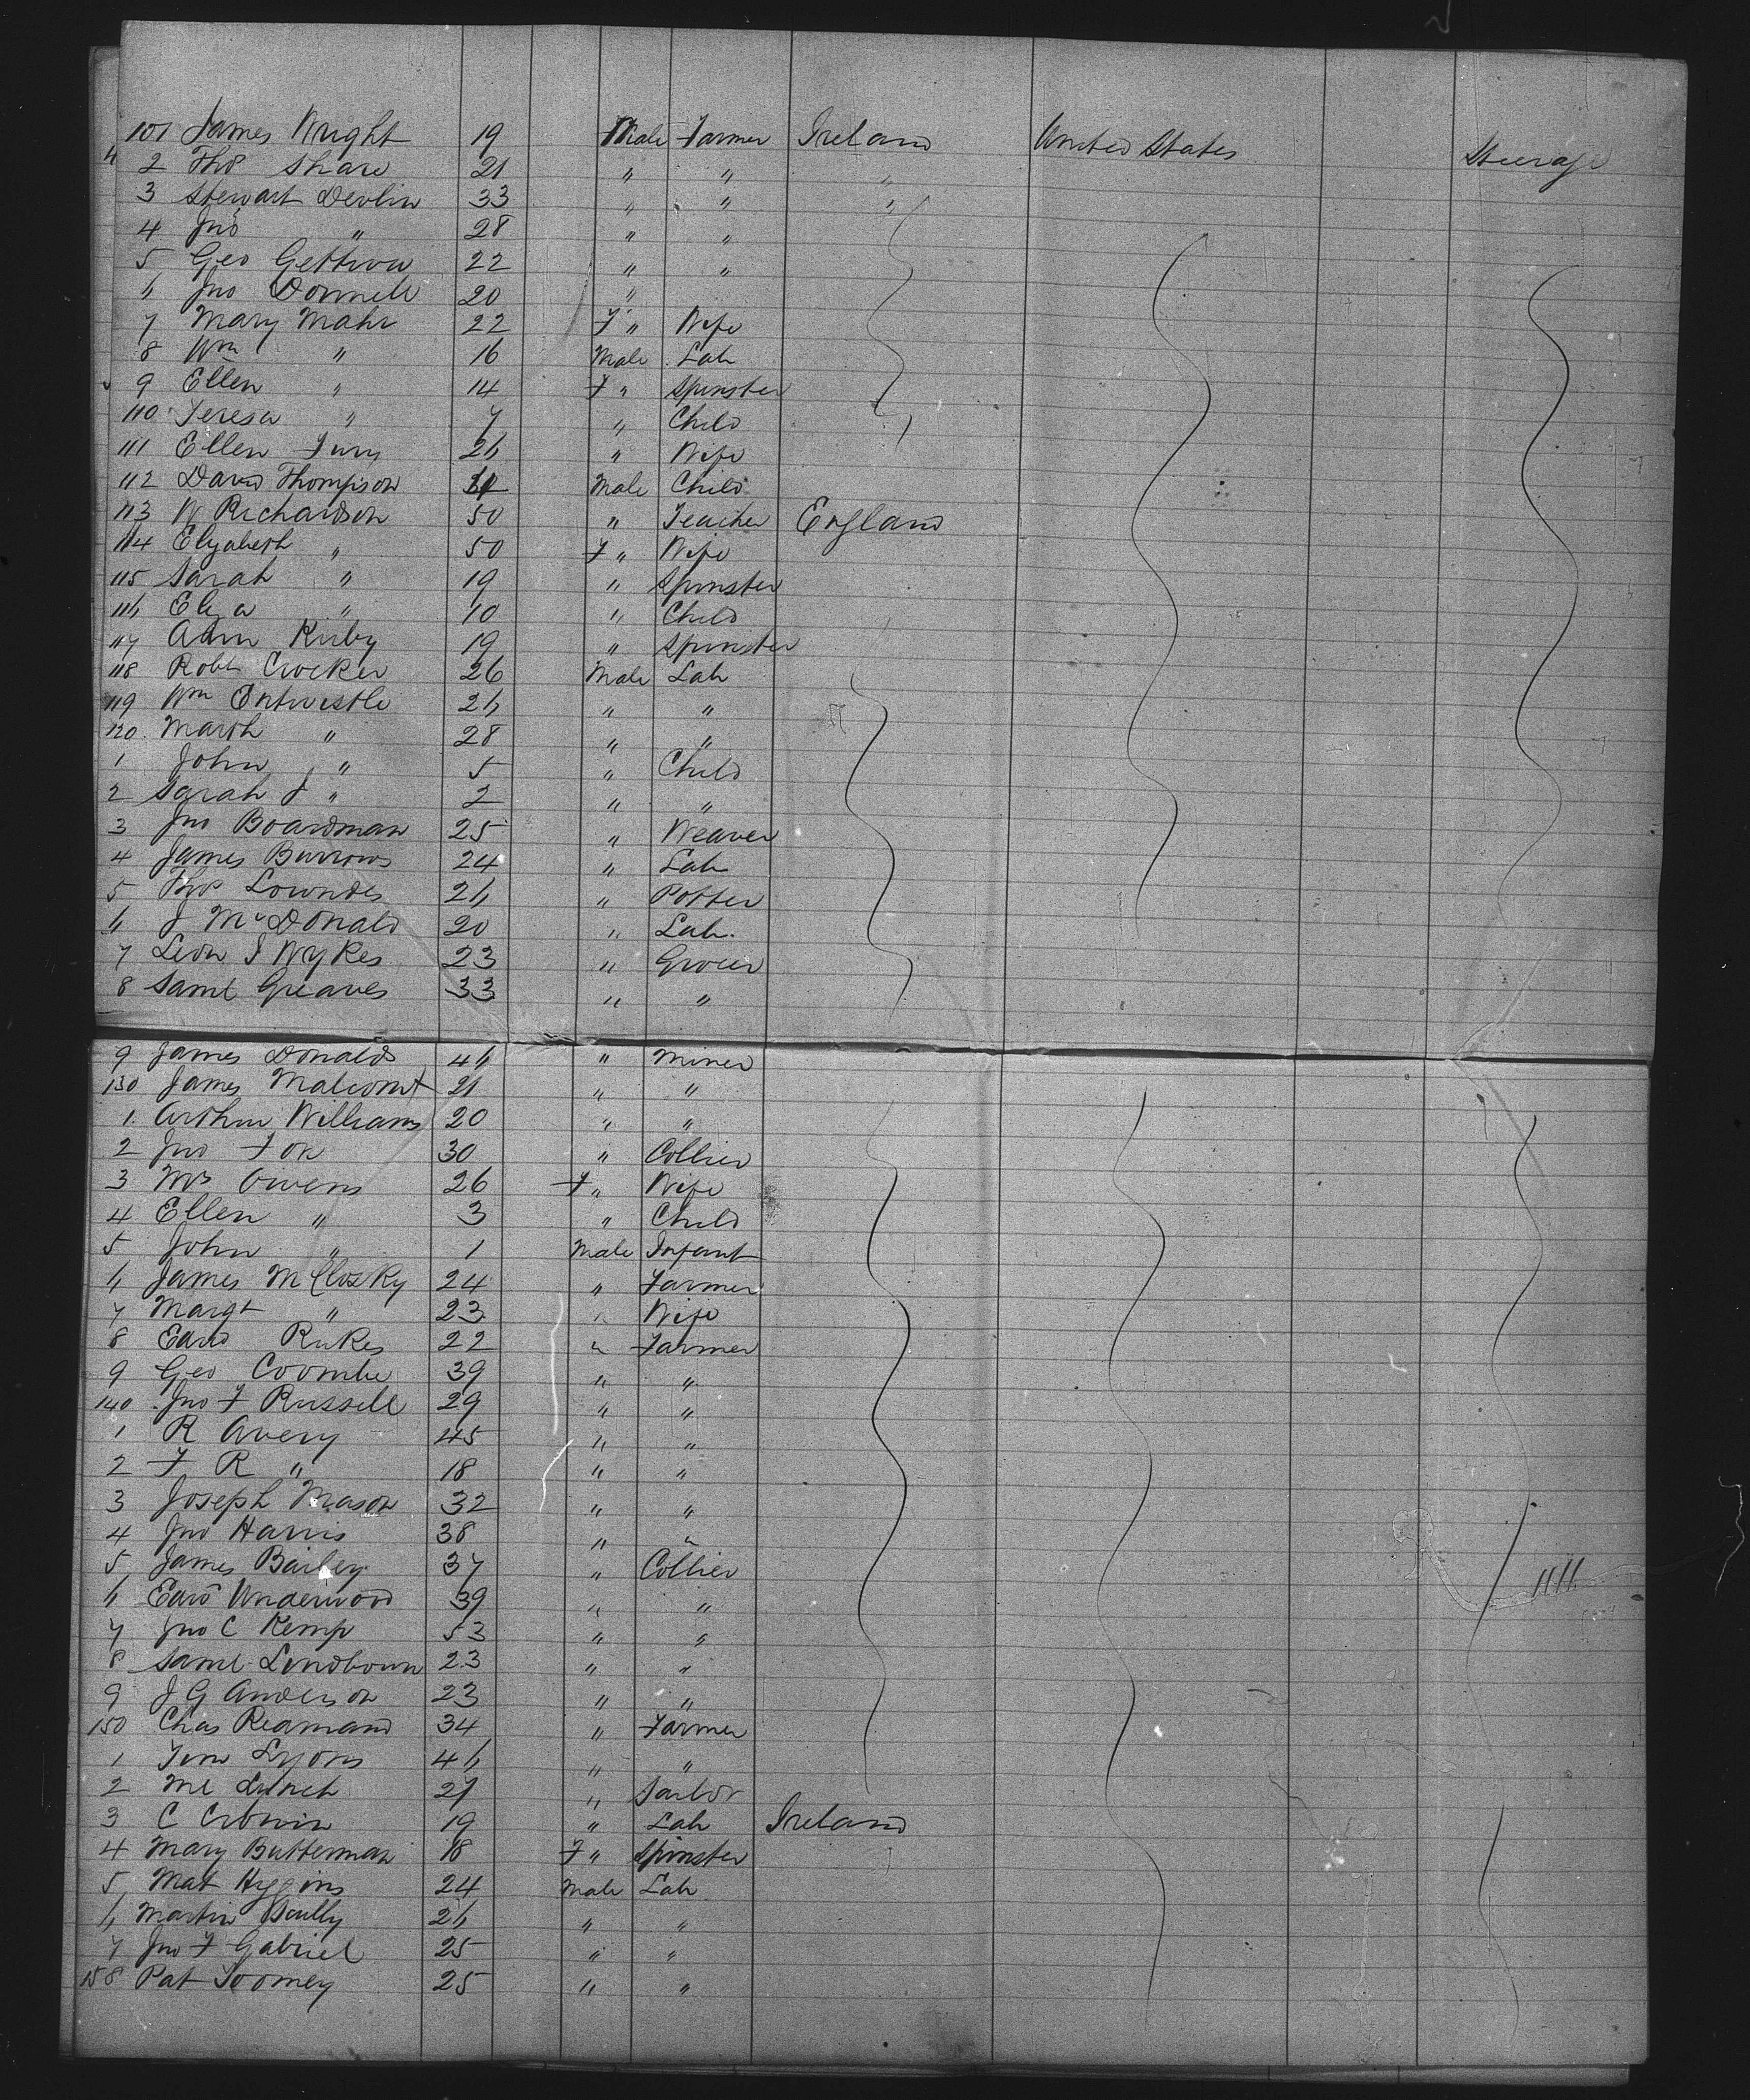 101 James Wright 19 Male Farmer Ireland United States Steerage
2 Thos Share 21 " " "
3 Stewart Devlin 33 " " "
4 Jno " 28 " "
5 Geo 22 " "
6 Jno Donnell 20 "
7 Mary Mahr 22 F " Wife
8 Wm " 16 Male Lab
9 Ellen " 14 F " Spinster
110 Teresa " 7 " Child
111 Ellen Fury 26 " Wife
112 David Thompson Male Child
113 W Richardson 50 " Teacher England
114 Elizabeth " 50 F " Wife
115 Sarah " 19 " Spinster
116 Eliza " 10 " Child
117 Ann Kirby 19 " Spinster
118 Robt Crocker 26 Male Lab
119 Wm Entwistle 26 " "
120 " 28 " "
1 John " 5 " Child
2 Sarah J " 2 " "
3 Jno Boardman 25 " Weaver
4 James Burrows 24 " Lab
5 Thos Lowndes 26 " Potter
6 J McDonald 20 " Lab.
7 Leon J Wykes 23 " Grocer
8 Saml Greaves 33 " "
9 James Donalds 46 " Miner
130 James 21 " "
1. Arthur Williams 20 " "
2 Jno Fox 30 " Collier
3 Mrs Owens 26 F " Wife
4 Ellen " 3 " Child
5 John " 1 Male Infant
6 James McClosky 24 " Farmer
7 Margt " 23 " Wife
8 Edwd 22 " Farmer
9 Geo Coombe 39 " "
140 Jno F Russell 29 " "
1 R Avery 45 " "
2 F R " 18 " "
3 Joseph Mason 32 " "
4 Jno Harris 38 " "
5 James Bailey 37 " Collier
6 Edwd Underwood 39 " "
7 Jno C Kemp 53 " "
8 Saml 23 " "
9 J G Anderson 23 " "
150 Chas 34 " Farmer
1 Tim Lyons 46 " "
2 Ml Lynch 27 " Sailor
3 C Cronin 19 " Lab Ireland
4 Mary Butterman 18 F " Spinster
5 Mat Higgins 24 Male Lab
6 Martin 26 " "
7 Jno F Gabriel 25 " "
158 Pat Toomey 25 " "